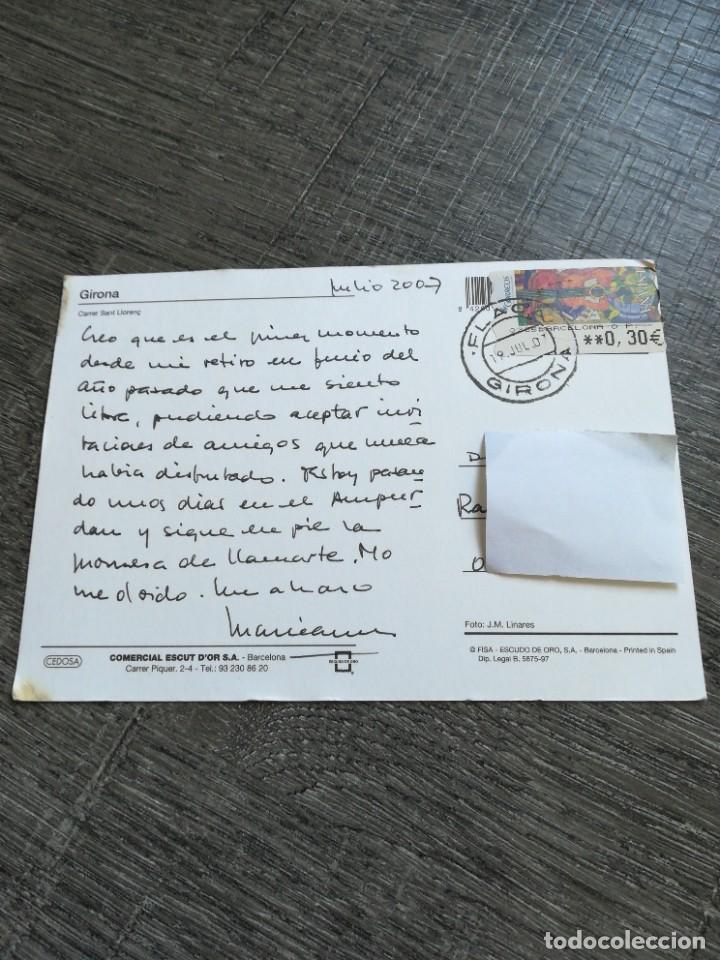 Girona
Julio 2007
Carrer Sant Llorenç
Creo que es el primer momento
desde mi retiro en junio del
año pasado que me siento
libre, pudiendo aceptar invi
taciones de amigos que nunca
había disfrutado. Estoy pasan
do unos días en el Ampur
dan y sigue en pie la
promesa de llamarte. No
me olvido. Un abrazo
CORREOS
BARCELONA
**0,30€
19 JUL.07
GIRONA
D
Ra
Foto: J.M. Linares
CEDOSA
COMERCIAL ESCUT D'OR S.A. - Barcelona
Carrer Piquer. 2-4 - Tel.: 93 230 86 20
ESCUDO DE ORO
© FISA - ESCUDO DE ORO, S.A. - Barcelona - Printed in Spain
Dip. Legal B. 5875-97
todocoleccion.net